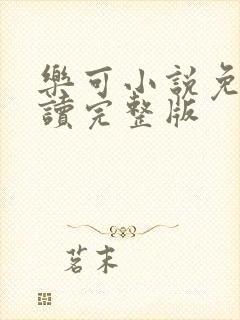 樂可小說免
讀完整版
茗末